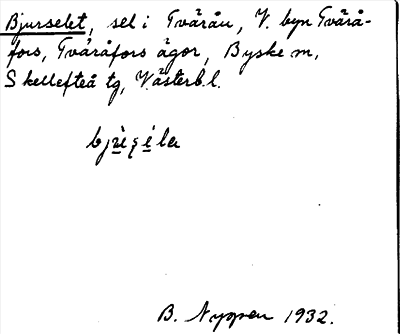 Bjurselet, sel i Tvärån, V. byn Tvärå-
fors, Tvåråfors ägor, Byske sn,
Skellefteå tg, Västerb. l.
B. Nygren 1932.